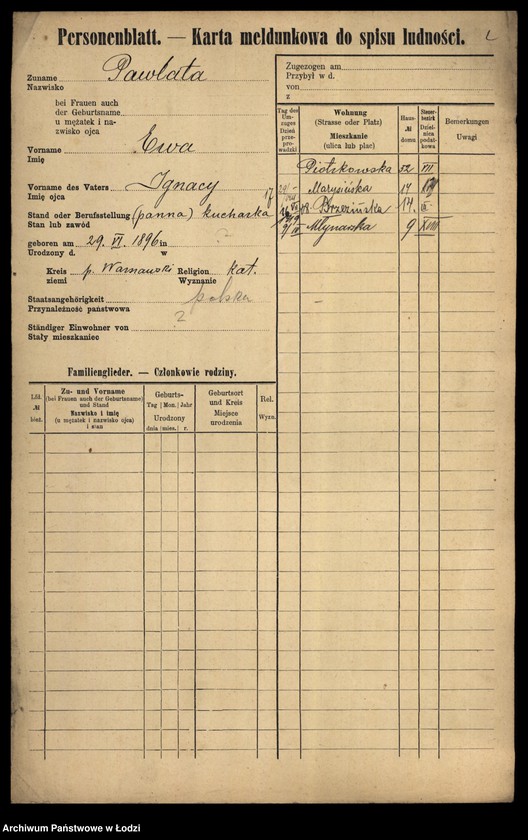 Personenblatt. — Karta meldunkowa do spisu ludności.
Zuname Pawlata
Nazwisko
bei Frauen auch
der Geburtsname
u mężatek i na-
zwisko ojca
Vorname Ewa
Imię
Vorname des Vaters Ignacy
Imię ojca
Stand oder Berufsstellung (panna) kucharka
Stan lub zawód
geboren am 29. VI. 1896 in ?
Urodzony d. w
Kreis p. Warszawski Religion kat.
ziemi Wyznanie
Staatsangehörigkeit polska
Przynależność państwowa
Ständiger Einwohner von ?
Stały mieszkaniec
Familienglieder. — Członkowie rodziny.
Lfd. № bież.
Zu- und Vorname
(bei Frauen auch der Geburtsname)
und Stand
Nazwisko i imię
(u mężatek i nazwisko ojca)
i stan
Geburts-
Tag Mon. Jahr
Urodzony
dnia mies. r.
Geburtsort
und Kreis
Miejsce
urodzenia
Rel.
Wyzn.
Zugezogen am
Przybył w d.
von
z
Tag des
Um-
zuges
Dzień
prze-
prowadzki
Wohnung
(Strasse oder Platz)
Mieszkanie
(ulica lub plac)
Haus-
№
domu
Steuer-
bezirk
Dziel-
nica
podat-
kowa
Bemerkungen
Uwagi
Piotrkowska 52 VII
Marysińska 14
Brzezińska 14.
Młynarska 9 XIII
Archiwum Państwowe w Łodzi